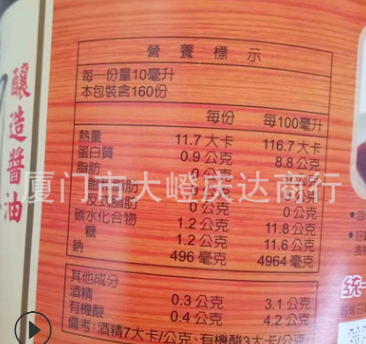 釀造醬油
營養標示
每一份量10毫升
本包裝含160份
每份 每100毫升
熱量 11.7大卡 116.7大卡
蛋白質 0.9公克 8.8公克
脂肪 0公克 0公克
飽和脂肪 0公克 0公克
反式脂肪 0公克 0公克
碳水化合物 1.2公克 11.8公克
糖 1.2公克 11.6公克
鈉 496毫克 4964毫克
其他成分
酒精 0.3公克 3.1公克
有機酸 0.4公克 4.2公克
備考:酒精7大卡/公克,有機酸3大卡/公克
厦门市大嶝庆达商行
統一